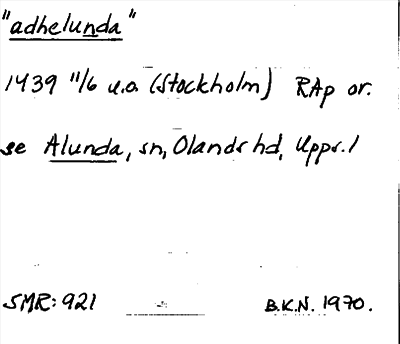 "adhelunda"
1439 11/6 u.o. (Stockholm) RAp or.
se Alunda, sn, Olands hd, Upps.l
SMR: 921 B.K.N. 1970.